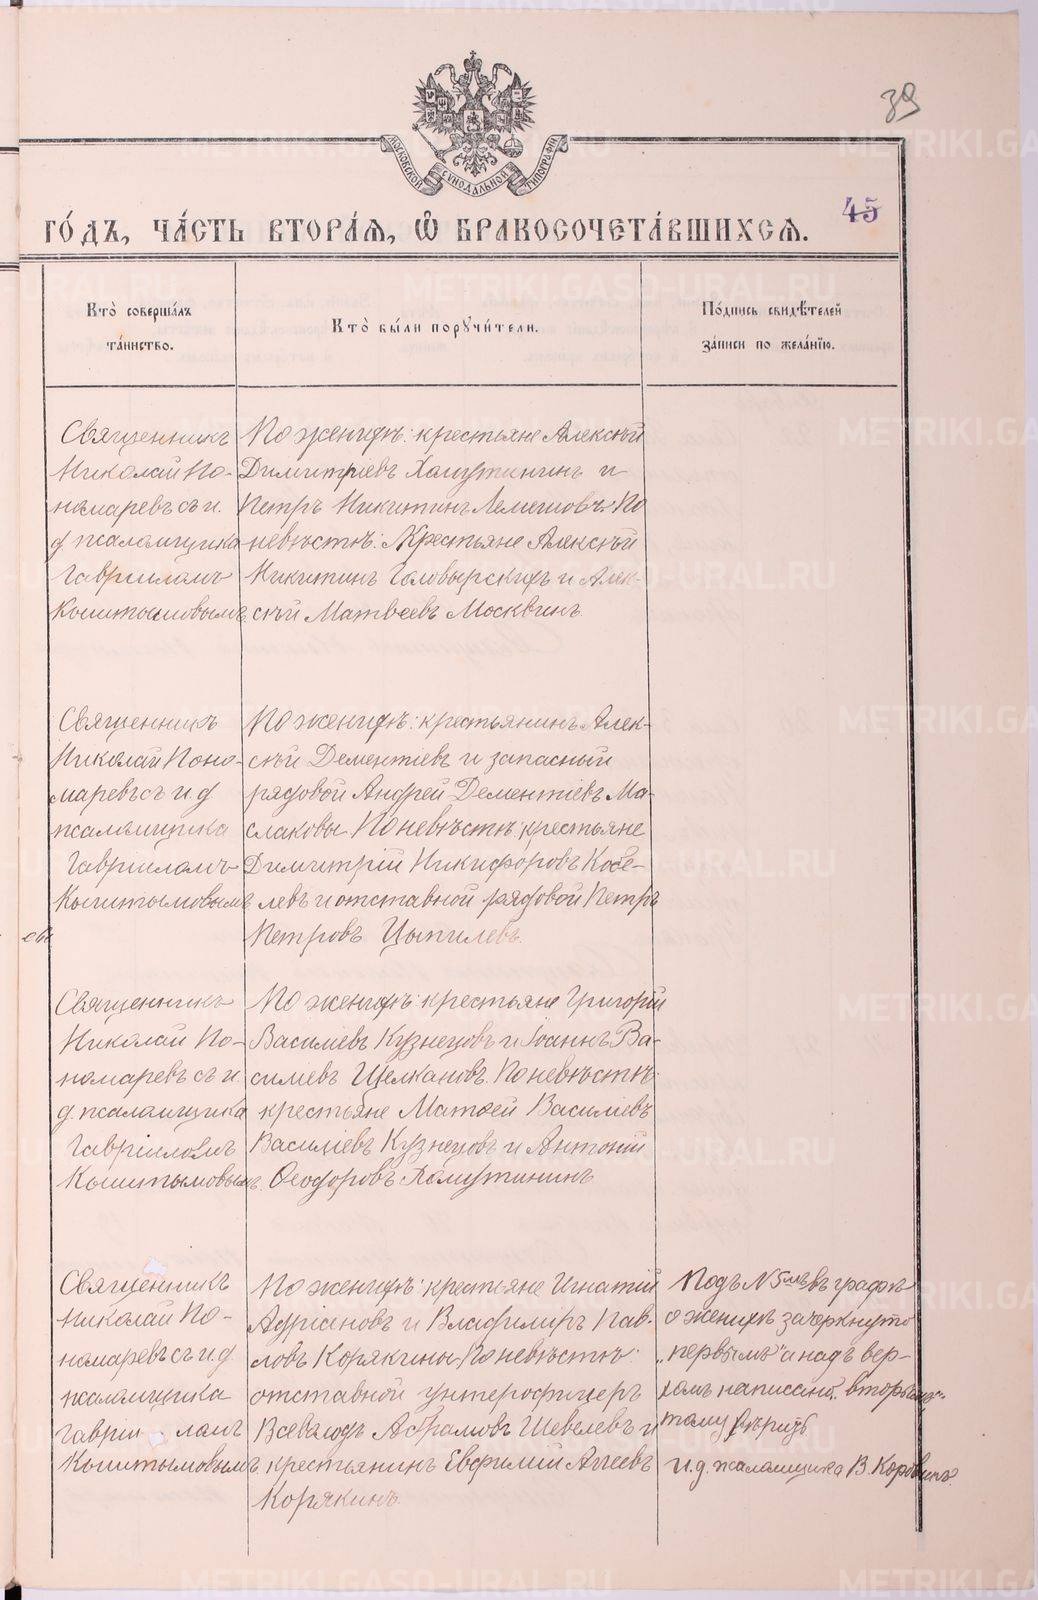 39
МОСКОВСКОЙ СѴНОДАЛЬНОЙ ТИПОГРАФІИ
45
ГО́ДЪ, ЧА́СТЬ ВТОРА́Я, Ѡ БРАКОСОЧЕТА́ВШИХСЯ.
Кто̀ соверша́лъ
та́инство.
Кто̀ бы́ли поручи́тели.
По́дпись свидѣ́телей
за́писи по жела́нїю.
Священникъ
Николай По-
номаревъ съ и.
д. псаломщика
Гавріиломъ
Кыштымовымъ
По женихѣ: крестьяне Алексѣй
Димитріевъ Хамутининъ и
Петръ Никитинъ Лемешовъ. По
невѣстѣ: Крестьяне Алексѣй
Никитинъ Головырскихъ и Алек-
сѣй Матвеевъ Москвинъ.
Священникъ
Николай Поно-
маревъ съ и. д
псаломщика
Гавріиломъ
Кыштымовымъ
По женихѣ: крестьянинъ Алек-
сѣй Дементіевъ и запасный
рядовой Андрей Дементіевъ Ма-
слаковы. По невѣстѣ: крестьяне
Димитрій Никифоровъ Косе-
левъ и отставной рядовой Петръ
Петровъ Цыпилевъ.
Священникъ
Николай По-
номаревъ съ и.
д. псаломщика
Гавріиломъ
Кыштымовымъ.
По женихѣ: крестьяне Григорій
Василіевъ Кузнецовъ и Іоаннъ Ва-
силіевъ Щелкановъ. По невѣстѣ:
крестьяне Матѳей Василіевъ
Василіевъ Кузнецовъ и Антоній
Ѳеодоровъ Хамутининъ
Священникъ
Николай По-
номаревъ съ и. д.
псаломщика
Гаврииломъ
Кыштымовымъ.
По женихѣ: крестьяне Игнатій
Адріановъ и Владимиръ Пав-
ловъ Корякины. По невѣстѣ:
отставной унтерофицеръ
Всеволодъ Абрамовъ Шевелевъ и
крестьянинъ Евфимій Аггеевъ
Корякинъ.
Подъ N 5мъ въ графѣ
о женихѣ зачеркнуто
„первымъ“ а надъ вер-
хомъ написано „вторымъ“
тому вѣрить
И. д. псаломщика В. Коровинъ.